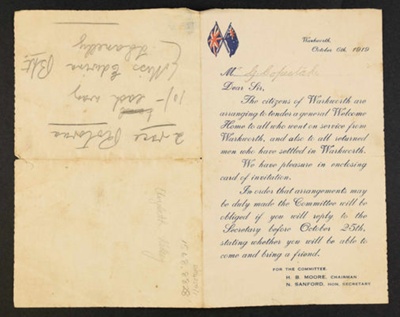 Warkworth
October 6th, 1919
M
Dear Sir,
The citizens of Warkworth are
arranging to tender a general Welcome
Home to all who went on service from
Warkworth, and also to all returned
men who have settled in Warkworth.
We have pleasure in enclosing
card of invitation.
In order that arrangements may
be duly made the Committee will be
obliged if you will reply to the
Secretary before October 25th,
stating whether you will be able to
come and bring a friend.
FOR THE COMMITTEE
H. B. MOORE, CHAIRMAN
N. SANFORD, HON. SECRETARY
2 nee Rotorua
10/- each way
(Miss Edwina